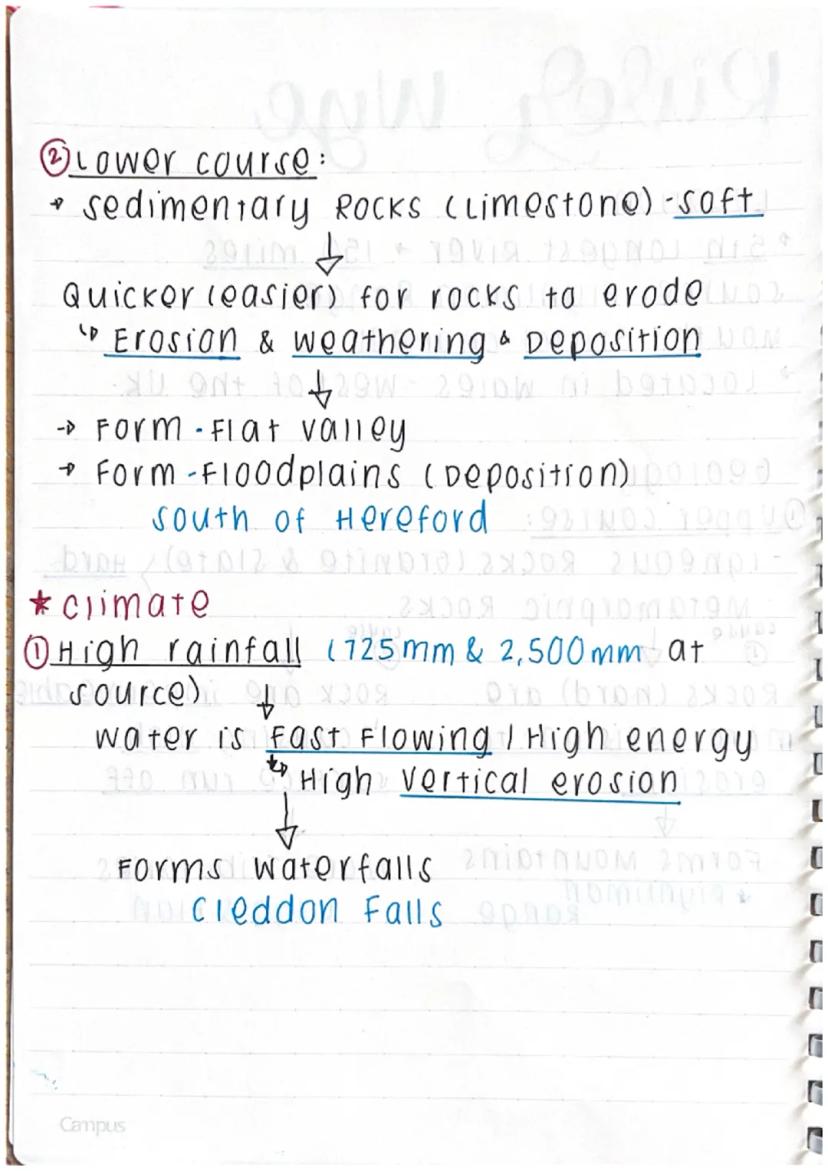 ② Lower course:
→ Sedimentary Rocks (Limestone) - soft
↓
Quicker (easier) for rocks to erode
↳ Erosion & weathering & Deposition
↓
→ Form - Flat valley
→ Form - Floodplains (Deposition)
South of Hereford
* Climate
① High rainfall (725mm & 2,500mm at
source)
↓
Water is fast flowing / High energy
↳ High vertical erosion
↓
Forms Waterfalls
Cleddon Falls
Campus